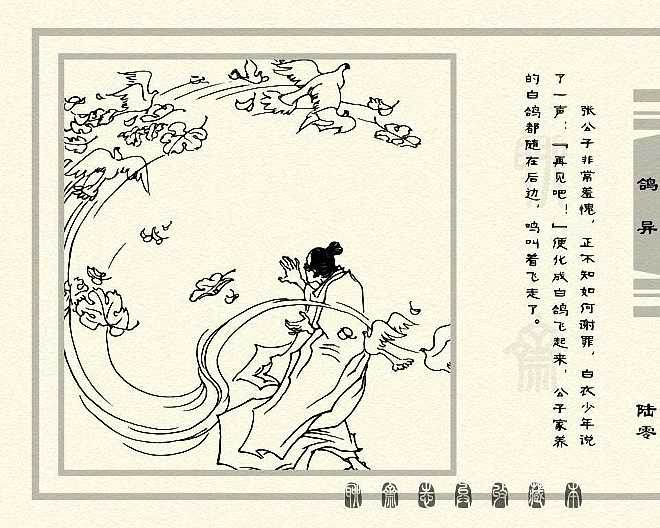 张公子非常羞愧，正不知如何谢罪，白衣少年说
了一声：「再见吧！」便化成白鸽飞起来，公子家养
的白鸽都随在后边，鸣叫着飞走了。
鸽异
陆零
聊斋志异珍藏本